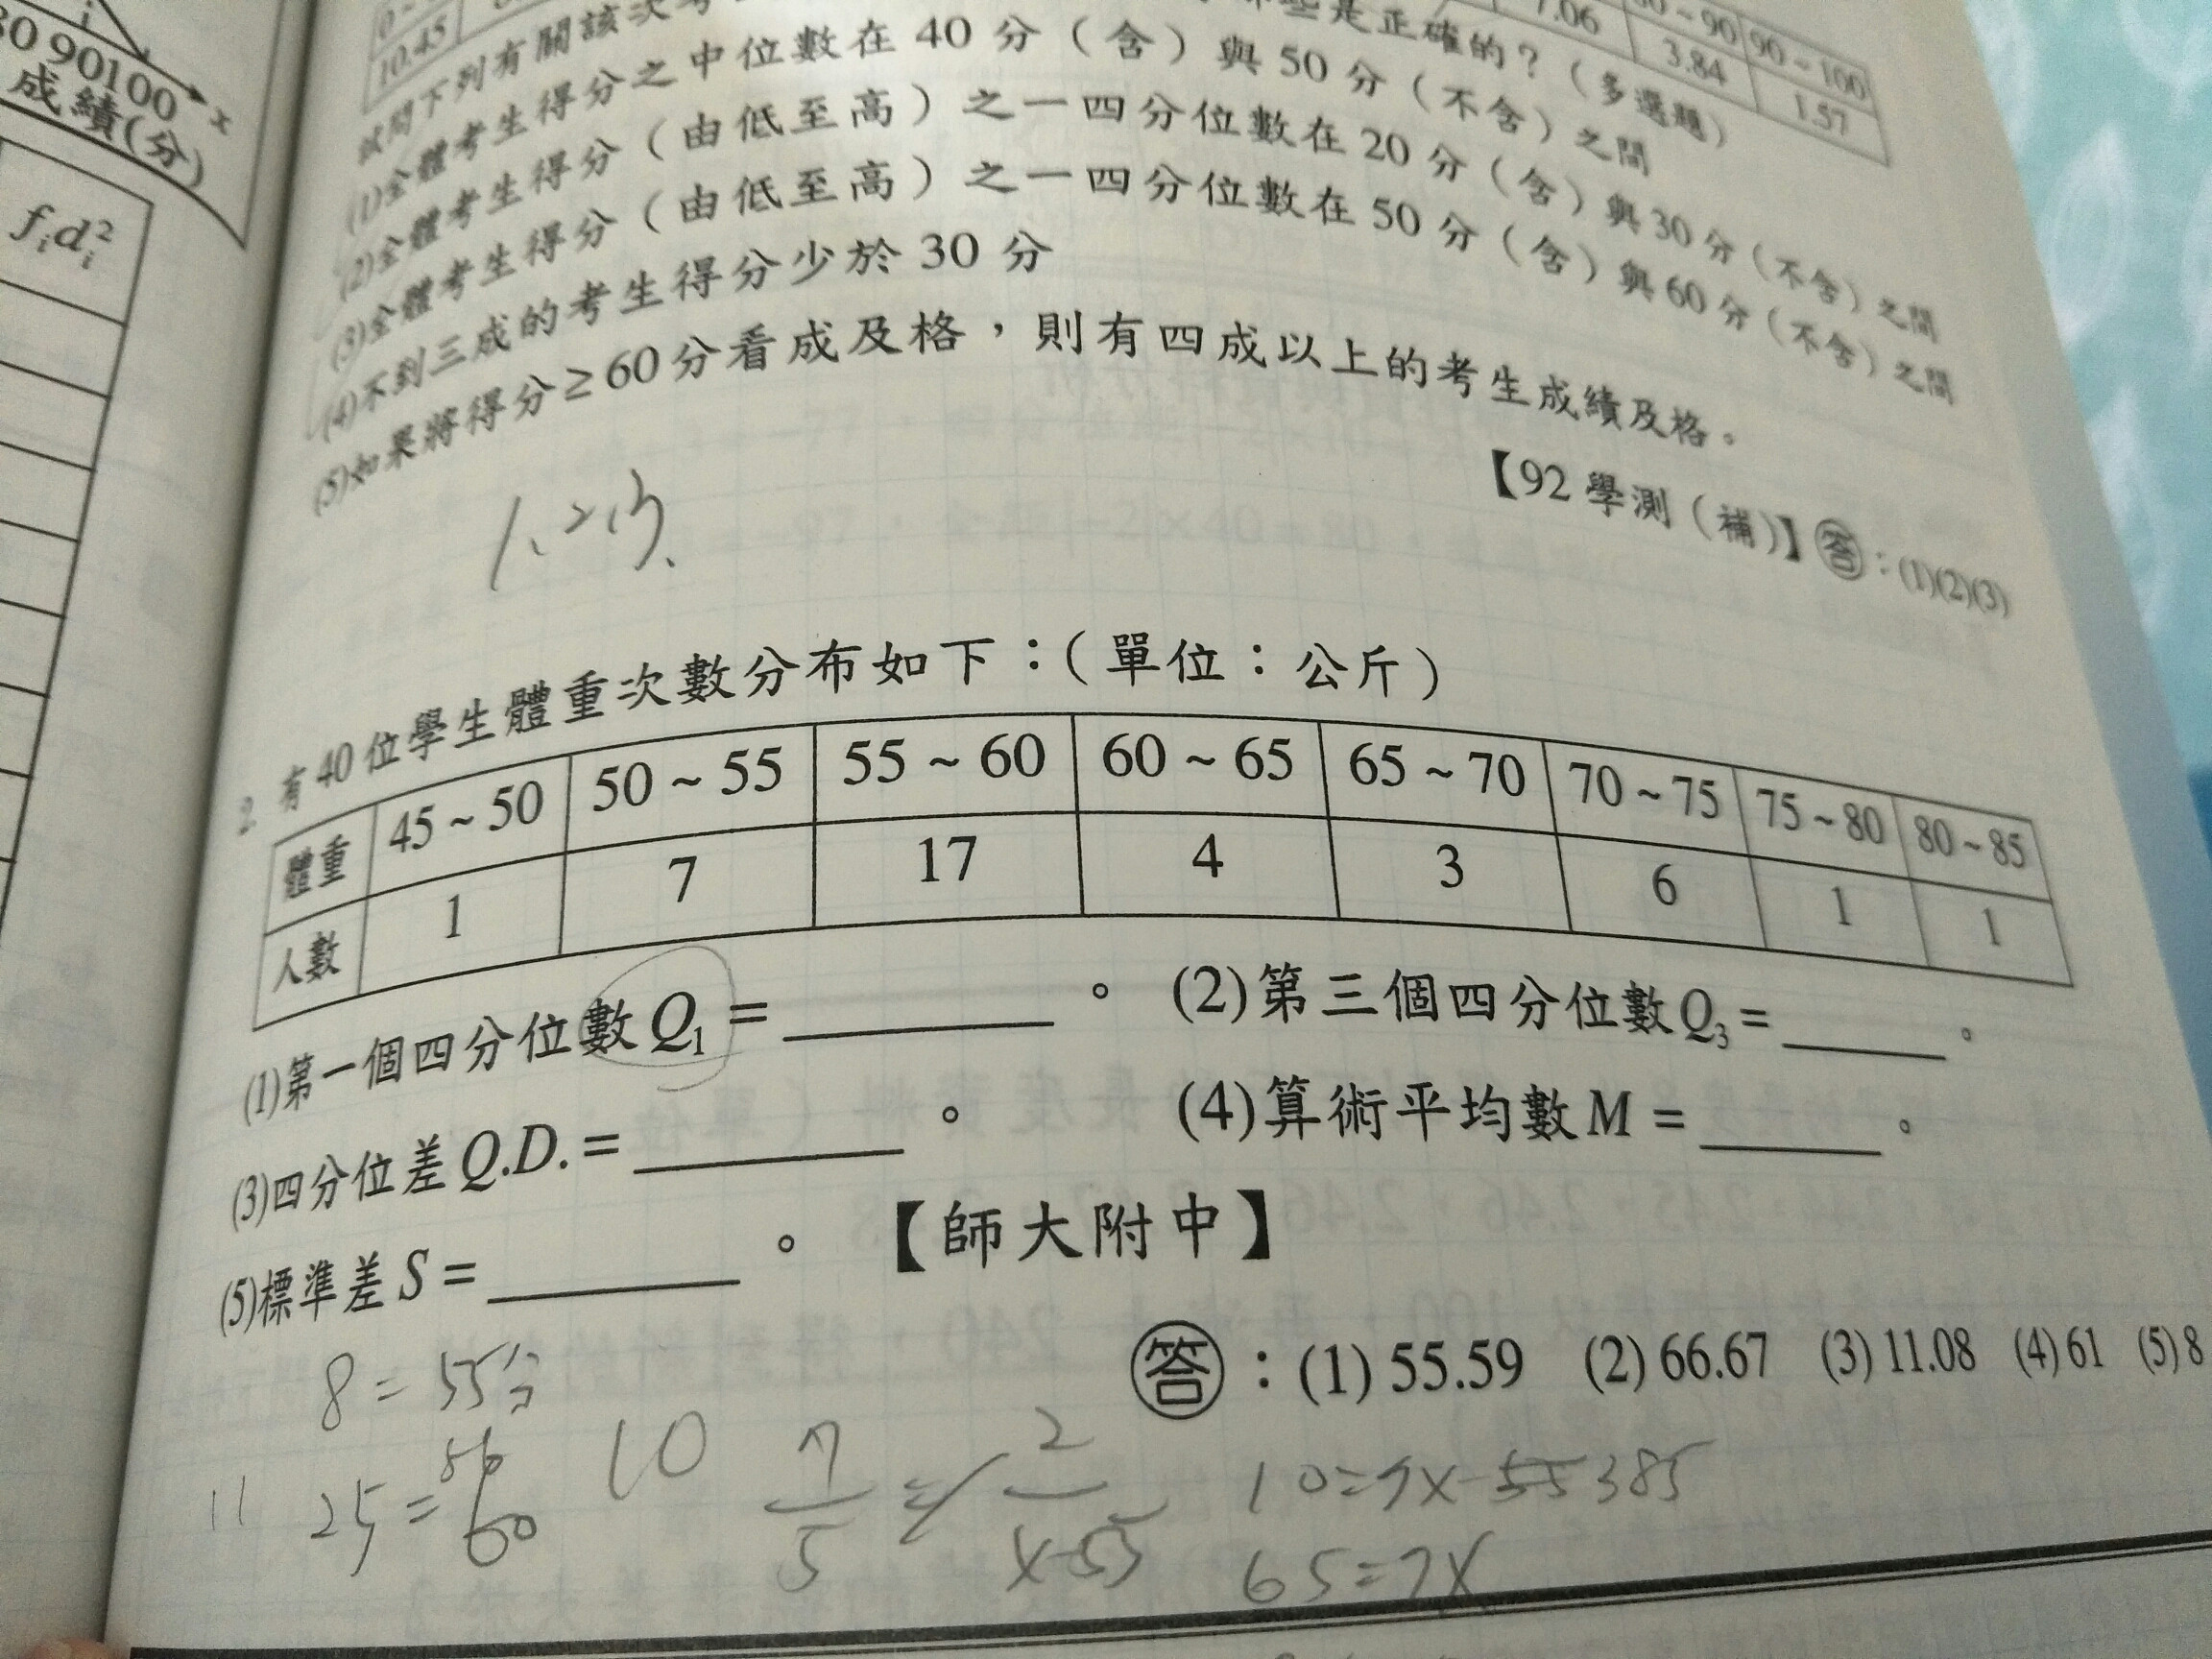 30 90100 x
成績(分)
fᵢdᵢ²
10.45
7.06
3.84
90~100
1.57
試問下列有關該次考
些是正確的？（多選題）
(1)全體考生得分之中位數在 40 分（含）與 50 分（不含）之間
(2)全體考生得分（由低至高）之一四分位數在 20 分（含）與 30 分（不含）之間
(3)全體考生得分（由低至高）之一四分位數在 50 分（含）與 60 分（不含）之間
(4)不到三成的考生得分少於 30 分
(5)如果將得分≥60分看成及格，則有四成以上的考生成績及格。
【92 學測（補）】答：(1)(2)(3)
1、2、3、
2. 有 40 位學生體重次數分布如下：（單位：公斤）
體重 45~50 50~55 55~60 60~65 65~70 70~75 75~80 80~85
人數 1 7 17 4 3 6 1 1
(1)第一個四分位數Q₁＝ 。 (2)第三個四分位數Q₃＝ 。
(3)四分位差Q.D.＝ 。 (4)算術平均數M＝ 。
(5)標準差S＝ 。 【師大附中】
答：(1) 55.59 (2) 66.67 (3) 11.08 (4) 61 (5) 8
8 = 55分
11 25 = 60 10 7/5 = 2/(x-55) 10=7x-385
65=7x